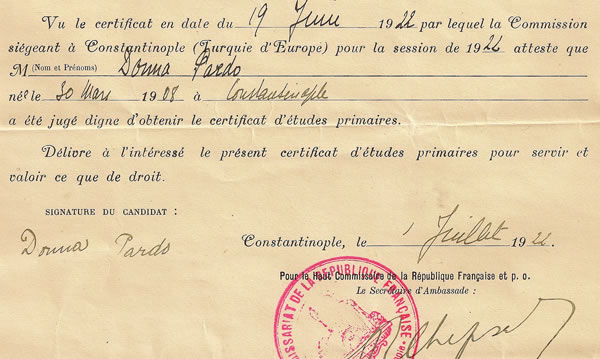 Vu le certificat en date du 19 Juin 1922 par lequel la Commission
siégeant à Constantinople (Turquie d'Europe) pour la session de 1922 atteste que
M (Nom et Prénoms) Donna Pardo
né e le 30 Mars 1908 à Constantinople
a été jugé digne d'obtenir le certificat d'études primaires.
Délivré à l'intéressé le présent certificat d'études primaires pour servir et
valoir ce que de droit.
SIGNATURE DU CANDIDAT :
Donna Pardo
Constantinople, le 1 Juillet 1922.
Pour le Haut Commissaire de la République Française et p. o.
Le Secrétaire d'Ambassade :
ISSARIAT DE LA RÉPUBLIQUE FRANÇAISE